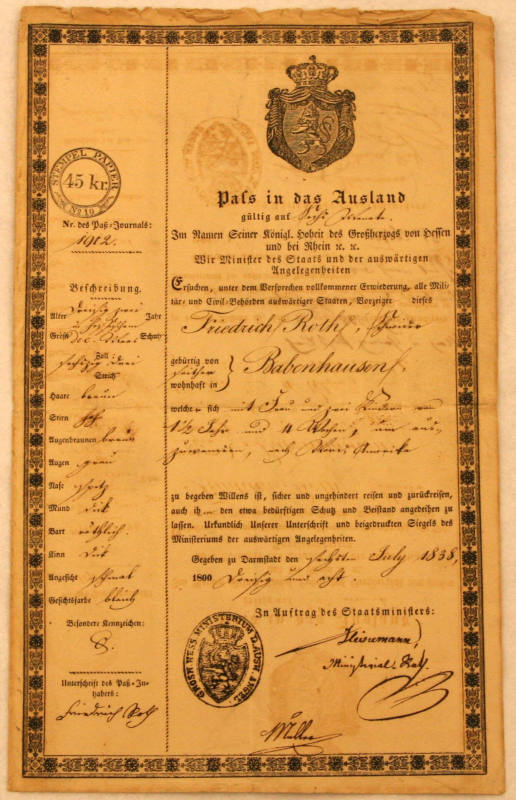 STEMPEL PAPIER
45 kr.
No 10
Nr. des Paß-Journals:
1902.
Beschreibung.
Alter Dreißig zwei Jahr
Größe Schuh
Zoll
sechzig drei
Strich
Haare braun
Stirn
Augenbraunen braun
Augen grau
Nase spitz
Mund dick
Bart röthlich.
Kinn dick
Angesicht schmal
Gesichtsfarbe bleich
Besondere Kennzeichen:
Unterschrift des Paß-In-
habers:
Friedrich Roth
Paſs in das Ausland
gültig auf Sechs Monate.
Im Namen Seiner Königl. Hoheit des Großherzogs von Hessen
und bei Rhein ꝛc. ꝛc.
Wir Minister des Staats und der auswärtigen
Angelegenheiten
Ersuchen, unter dem Versprechen vollkommener Erwiederung, alle Mili-
tär- und Civil-Behörden auswärtiger Staaten, Vorzeiger dieses
Friedrich Roth,
gebürtig von
seither
wohnhaft in
} Babenhausen,
welche - sich mit Frau und zwei Kindern von
1½ Jahr und 4 Wochen, um aus-
zuwandern, nach Nord-Amerika
zu begeben Willens ist, sicher und ungehindert reisen und zurückreisen,
auch ih... den etwa bedürftigen Schutz und Beistand angedeihen zu
lassen. Urkundlich Unserer Unterschrift und beigedruckten Siegels des
Ministeriums der auswärtigen Angelegenheiten.
Gegeben zu Darmstadt den sechsten July 1838,
1800 Dreißig und acht.
In Auftrag des Staatsministers:
Ministerial-Rath.
GROSH. HESS. MINISTERIUM D. AUSW. ANGEL.
Müller